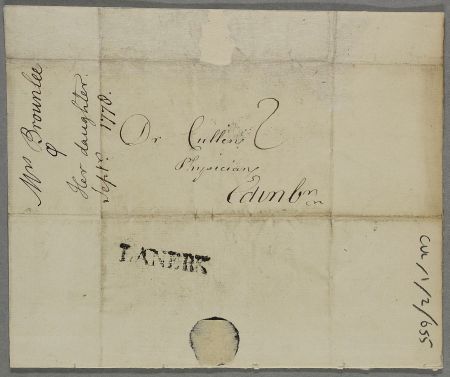 Mrs Brownlee
Her daughter.
Septr. 1778.
Dr Cullen
Physician
Edinbr
LANERK
CUL/1/2/655